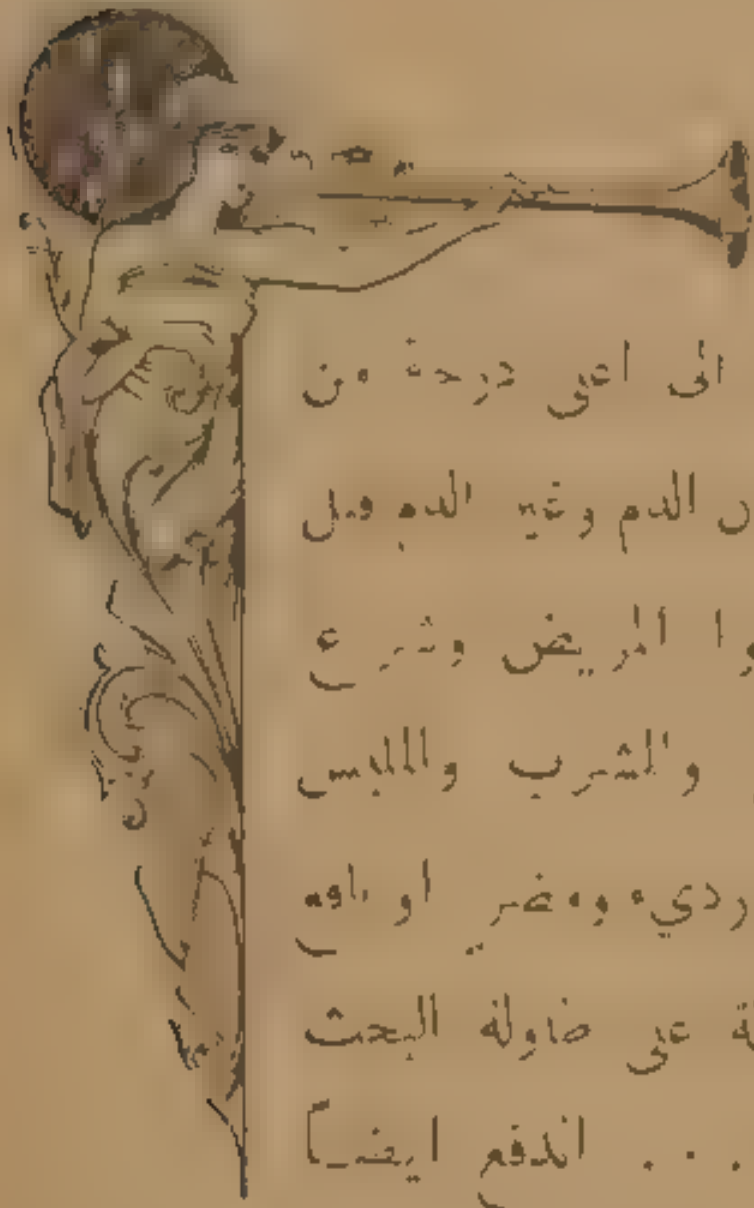 الى اعلى درجة من
الدم وغير الدم قبل
المريض وشرع
والشرب والملبس
رديء ومضر او نافع
على طاولة البحث
. . . اندفع ايضاً